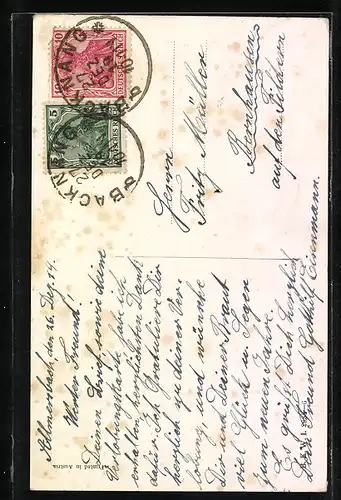 Allmersbach, den 26. Dez. 19.
Werter Freund!
Dein Brief sowie deine
Verlobungskarte habe ich
erhalten herzlichen Dank
dafür. Ich Gratuliere Dir
herzlich zu deiner Ver-
lobung, und wünsche
Dir und Deiner Braut
viel Glück u. Segen
zum neuen Jahre.
Es grüßt Dich herzlich
Dein Freund Gotthilf Eisenmann.
Herrn
Fritz Müller
Bernhausen
auf den Fildern
BACKNANG
27 DEZ
10
DEUTSCHES REICH
BACKNANG
27 DEZ
5
DEUTSCHES REICH
Printed in Austria